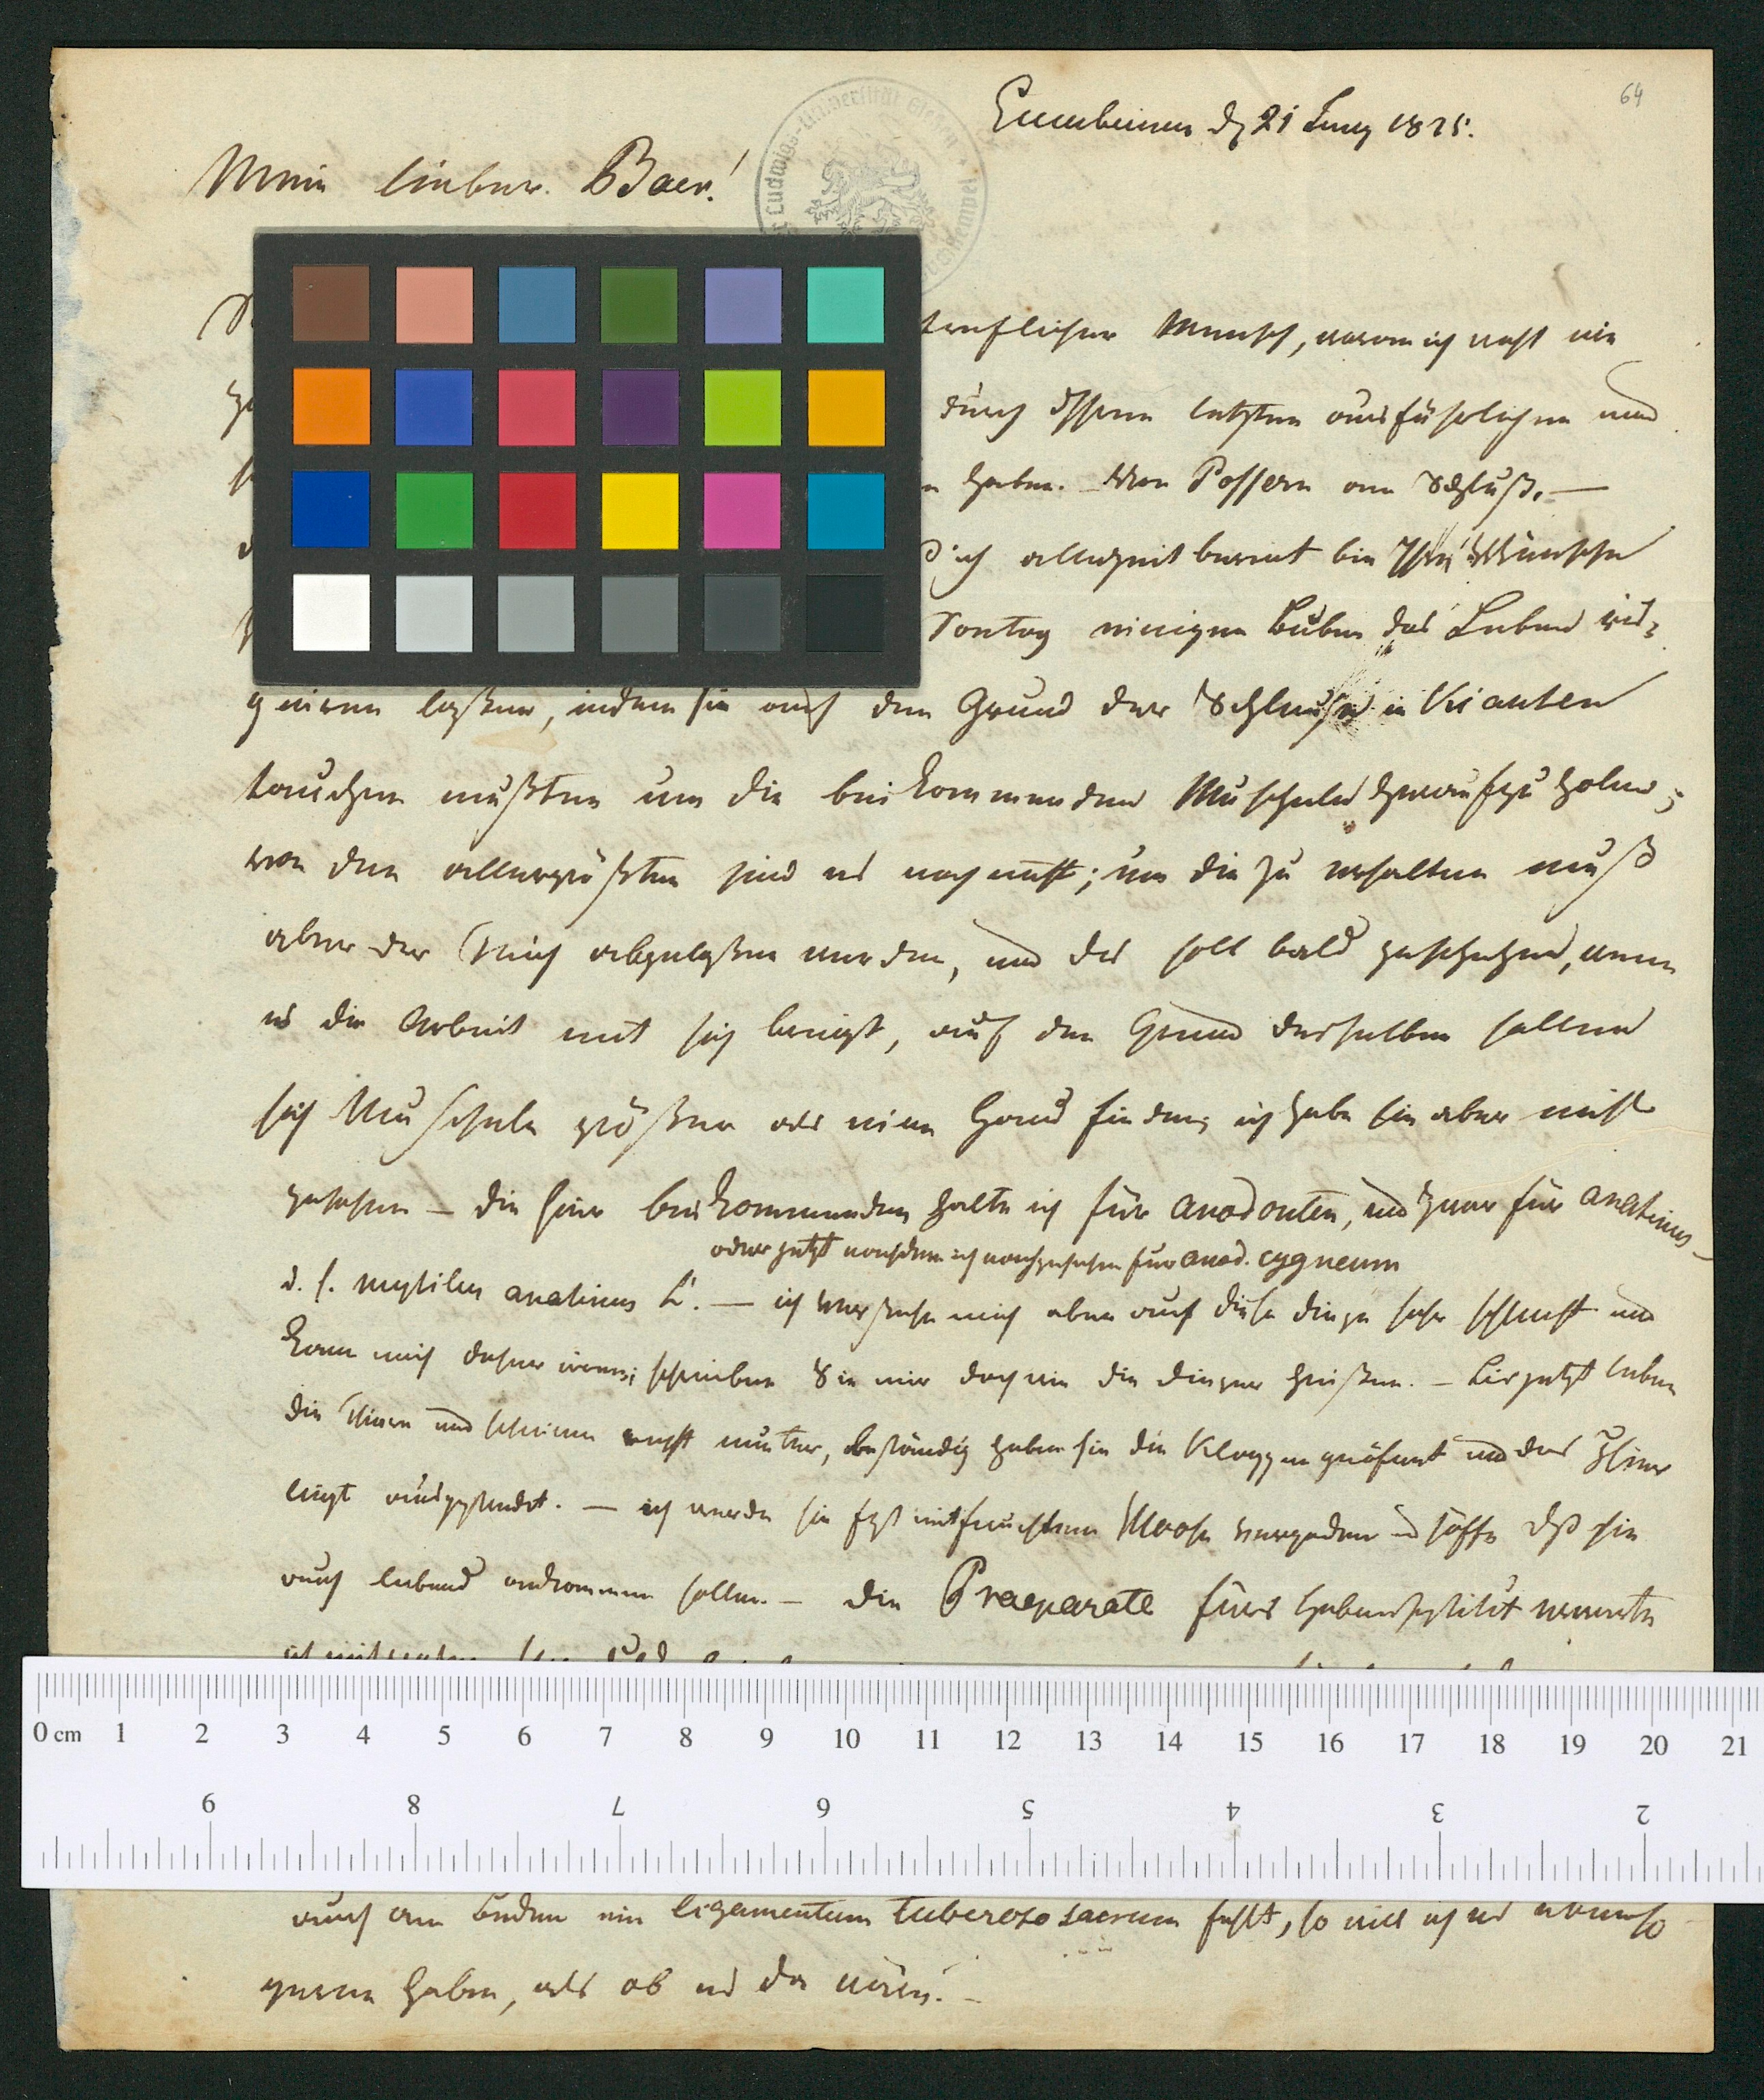 64
Gumbinnen d 21 Juny 1825.
Mein lieber Baer!
trefflicher Mensch, warum ich nicht wie
durch Ihren letzten ausführlichen und
haben. Den Possern am Schluß. —
ich allezeit bereit bin Ihre Wünsche
Sontag einigen Buben das Leben ris=
quiren laßen, indem sie auf den Grund der Schleuse in Kianten
tauchen mußten um die beikommenden Muscheln heraufzu holen;
von den allergrößten sind es noch nicht; um die zu erhalten muß
aber der Teich abgelaßen werden, und das soll bald geschehen, wenn
es die Arbeit mit sich bringt, auf dem Grund desselben sollen
sich Muscheln größer als eine Hand finden; ich habe sie aber nicht
gesehen — die hier beikommenden halte ich für anodonten, und zwar für anatinus —
oder jetzt nachdem ich nachgesehen für anod. cygneum
d. h. mytilus anatinus L. — ich verstehe mich aber auf diese dinge sehr schlecht und
kann mich daher irren; schreiben Sie mir doch wie die dinger heißen. — bis jetzt leben
die Thiere und scheinen recht munter, beständig haben sie die Klappen geöfnet und das Thier
liegt ausgestreckt. — ich werde sie fest mit feuchtem Moose verpacken und hoffe dß sie
auch lebend ankommen sollen. — die Praeparate fürs Hebeinstitut
0 cm 1 2 3 4 5 6 7 8 9 10 11 12 13 14 15 16 17 18 19 20 21
9 8 7 6 5 4 3 2
auch am Becken ein ligamentum tuberoso sacrum fehlt, so will ich es ebenso
gerne haben, als ob es da wäre. —